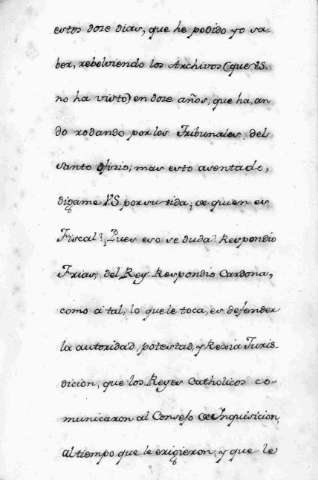 estos dose dias, que he podido yo sa-
ber, rebolviendo los Archivos (que VS.
no ha visto) en dose años, que ha, an-
do rodando por los Tribunales, del
Santo oficio; mas esto asentado,
digame VS por su vida, de quien es
Fiscal? Pues eso se duda? Respondio
Frias, del Rey Respondio Cardona,
como a tal, lo que le toca, es defender
la autoridad, potestad, y Regia Juris-
diccion, que los Reyes Catholicos co-
municaron al Consejo de Inquisicion,
al tiempo que le erigieron, y que le